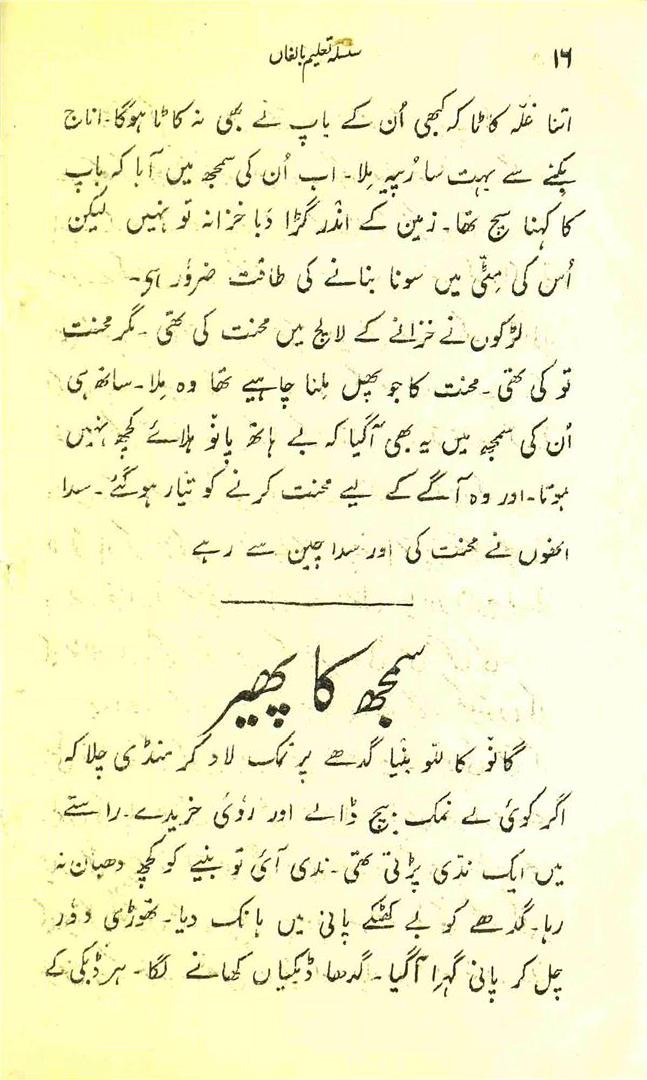 ۱۶ سلسلہ تعلیم بالغاں
اتنا غلّہ کاٹا کہ کبھی اُن کے باپ نے بھی نہ کاٹا ہوگا۔ اناج
بِکنے سے بہت سا رُپیہ مِلا۔ اب اُن کی سمجھ میں آیا کہ باپ
کا کہنا سچ تھا۔ زمین کے اندَر گَڑا دَبا خزانہ تو نہیں لیکن
اُس کی مِٹّی میں سونا بنانے کی طاقت ضرور ہی۔
لڑکوں نے خزانے کے لالچ میں محنت کی تھی۔ مگر محنت
تو کی تھی۔ محنت کا جو پھل مِلنا چاہیے تھا وہ مِلا۔ ساتھ ہی
اُن کی سمجھ میں یہ بھی آگیا کہ بے ہاتھ پانْو ہلائے کچھ نہیں
ہوتا۔ اور وہ آگے کے لیے محنت کرنے کو تیّار ہوگئے۔ سدا
انھوں نے محنت کی اور سدا چین سے رہے
سمجھ کا پھیر
گانْو کا للّو بنْیا گدھے پر نمک لاد کر منڈی چلا کہ
اگر کوئی لے نمک بیچ ڈالے اور روئی خریدے۔ راستے
میں ایک ندّی پڑتی تھی۔ ندی آئی تو بنیے کو کچھ دھیان نہ
رہا۔ گدھے کو بے کھٹکے پانی میں ہانک دیا۔ تھوڑی دوٗر
چل کر پانی گہرا آگیا۔ گدھا ڈبکیاں کھانے لگا۔ ہر ڈبکی کے